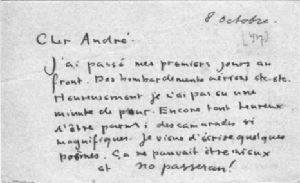 8 octobre.
[37]
Cher André.
J'ai passé mes premiers jours au
front. Des bombardements aériens etc. etc.
Heureusement je n'ai pas eu une
minute de peur. Encore tout heureux
d'être parmi des camarades si
magnifiques. Je viens d'écrire quelques
poèmes. Ça ne pouvait être mieux
et no pasaran!